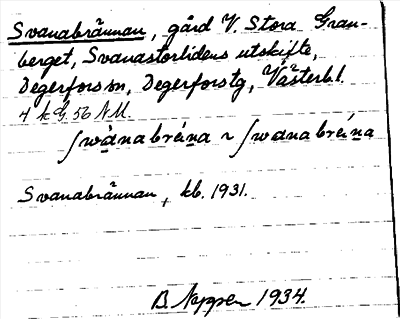 Svanabrännan, gård V. Stora Gran-
berget, Svanastorlidens utskifte,
Degerfors sn, Degerforstg, Västerbl.
4 k G. 56 NU.
ʃwànabrén̲a ~ ʃwanabrén̲a
Svanabrännan, kb. 1931.
B. Nygren 1934.